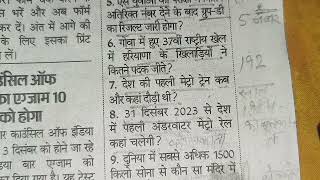 5. ऐसे युवाओं का
अतिरिक्त नंबर देने के बाद ग्रुप-डी
का रिजल्ट जारी होगा?
6. गोवा में हुए 37वीं राष्ट्रीय खेल
में हरियाणा के खिलाड़ियों ने
कितने पदक जीते?
7. देश की पहली मेट्रो ट्रेन कब
और कहां दौड़ी थी?
8. 31 दिसंबर 2023 से देश
में पहली अंडरवाटर मेट्रो रेल
कहां चलेगी?
9. दुनिया में सबसे अधिक 1500
किलो सोना से कौन सा मंदिर में
भरें और अब फॉर्म
कर दें। अंत में आगे की
के लिए इसका प्रिंट
लें।
उंसिल ऑफ
का एग्जाम 10
को होगा
बार काउंसिल ऑफ इंडिया
3 दिसंबर को होने जा रहे
या बार एग्जाम को
कर दिया गया है। यह टेस्ट
5
192